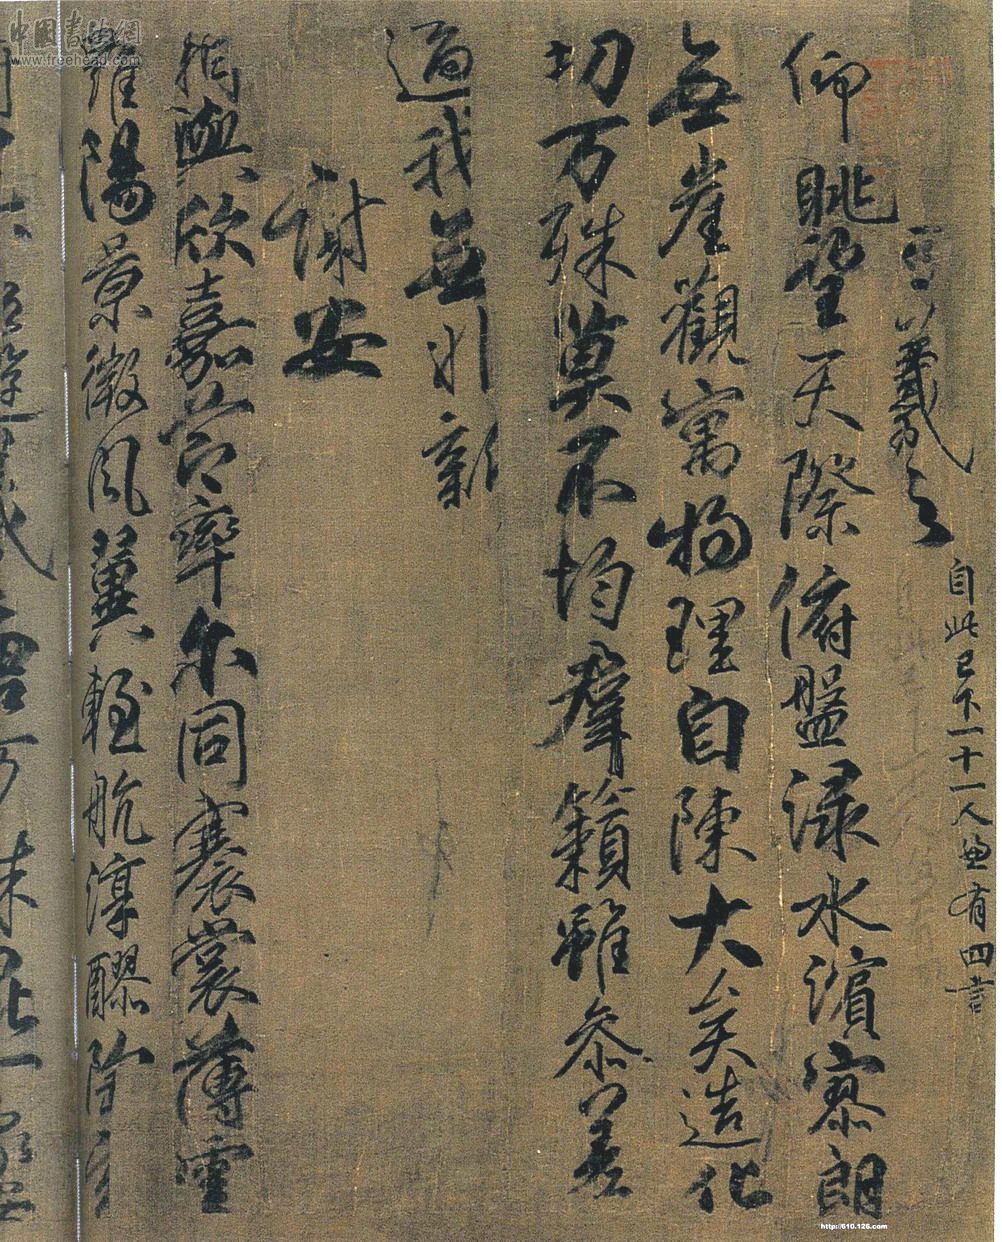 羲之
自此已下一十一人並有四言
仰眺望天際俯盤淥水濱寥朗
無崖觀寓物理自陳大矣造化
切万殊莫不均羣籟雖叅差
適我無非新
謝安
相與欣嘉節率尔同褰裳薄雲
羅陽景微風翼輕航淳醪陶
中国书法網
www.freehead.com
http://610.126.com